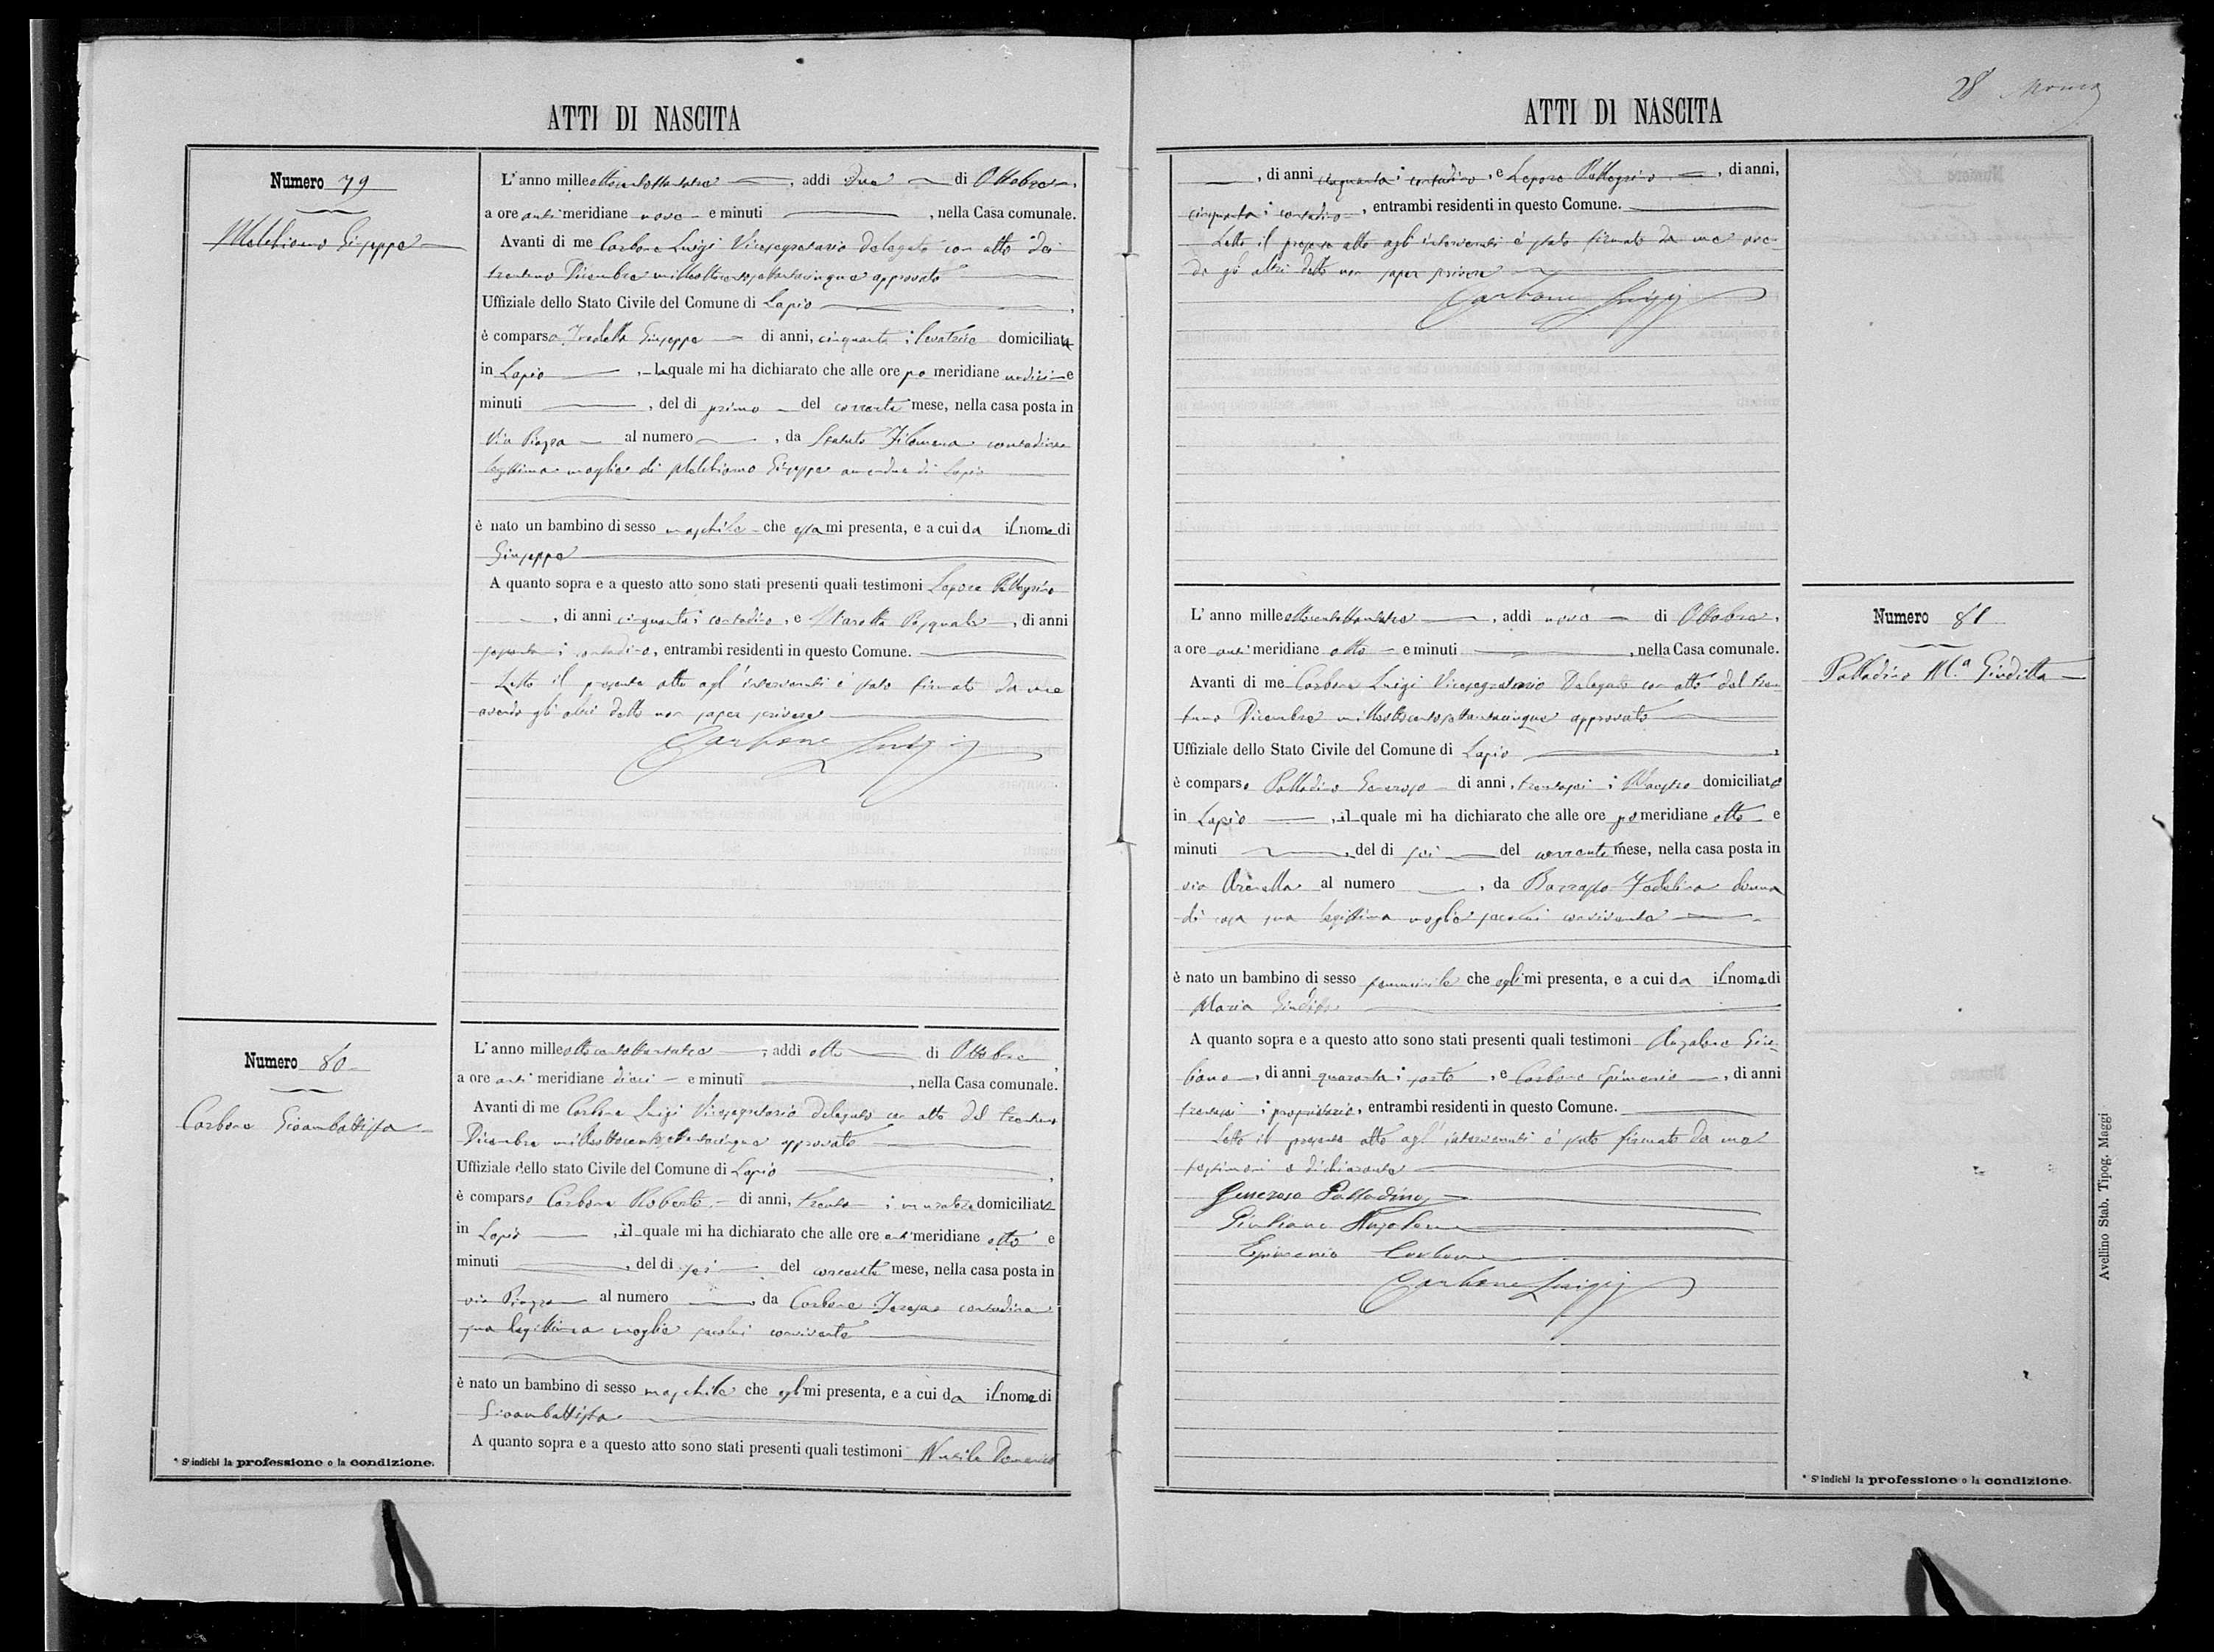 ATTI DI NASCITA
Numero 79
Melchionno Giuseppe
L'anno milleottocentottantatre, addi due di Ottobre,
a ore anti meridiane nove e minuti , nella Casa comunale.
Avanti di me Carbone Luigi Vicesegretario Delegato con atto del
trentuno Dicembre milleottocentosettantacinque approvato
Uffiziale dello Stato Civile del Comune di Lapio
è comparsa Giuseppa di anni, cinquanta; levatrice domiciliata
in Lapio , laquale mi ha dichiarato che alle ore po meridiane undici e
minuti , del di primo del corrente mese, nella casa posta in
Via Piazza al numero , da Filomena contadina
legittima moglie di Giuseppe amendue di Lapio
è nato un bambino di sesso maschile che essa mi presenta, e a cui da il nome di
Giuseppe
A quanto sopra e a questo atto sono stati presenti quali testimoni Lepore Pellegrino
, di anni cinquanta; contadino, e Pasquale , di anni
; contadino, entrambi residenti in questo Comune.
Letto il presente atto agl'intervenuti è stato firmato da me
avendo gli altri detto non saper scrivere
Carbone Luigi
Numero 80
Carbone Gioambattista
L'anno milleottocentottantatre, addi otto di Ottobre,
a ore anti meridiane dieci e minuti , nella Casa comunale.
Avanti di me Carbone Luigi Vicesegretario delegato con atto del trentuno
Dicembre milleottocentosettantacinque approvato
Uffiziale dello stato Civile del Comune di Lapio
è comparso Carbone Roberto di anni, trenta ; muratore domiciliato
in Lapio , il quale mi ha dichiarato che alle ore anti meridiane otto e
minuti , del di sei del corrente mese, nella casa posta in
via Piazza al numero , da Carbone Teresa contadina
sua legittima moglie secolui convivente
è nato un bambino di sesso maschile che egli mi presenta, e a cui da il nome di
Gioambattista
A quanto sopra e a questo atto sono stati presenti quali testimoni Domenico
* S'indichi la professione o la condizione.
28
ATTI DI NASCITA
, di anni cinquanta; contadino, e Lepore Pellegrino , di anni,
cinquanta; contadino, entrambi residenti in questo Comune.
Letto il presente atto agl'intervenuti è stato firmato da me aven
do gli altri detto non saper scrivere
Carbone Luigi
Numero 81
Palladino Mª Giuditta
L'anno milleottocentottantatre, addi nove di Ottobre,
a ore anti meridiane otto e minuti , nella Casa comunale.
Avanti di me Carbone Luigi Vicesegretario Delegato con atto del tren
tuno Dicembre milleottocentosettantacinque approvato
Uffiziale dello Stato Civile del Comune di Lapio
è comparso Palladino Generoso di anni, trentasei ; Maestro domiciliato
in Lapio , il quale mi ha dichiarato che alle ore po meridiane otto e
minuti , del di sei del corrente mese, nella casa posta in
via Arenella al numero , da donna
di casa sua legittima moglie secolui convivente
è nato un bambino di sesso femminile che egli mi presenta, e a cui da il nome di
Maria Giuditta
A quanto sopra e a questo atto sono stati presenti quali testimoni Anzalone Giu-
liano, di anni quaranta; sarto , e Carbone Epimenio , di anni
trentasei ; proprietario, entrambi residenti in questo Comune.
Letto il presente atto agl'intervenuti è stato firmato da me
testimoni e dichiarante
Generoso Palladino
Giuliano Anzalone
Epimenio Carbone
Carbone Luigi
* S'indichi la professione o la condizione.
Avellino Stab. Tipog. Maggi